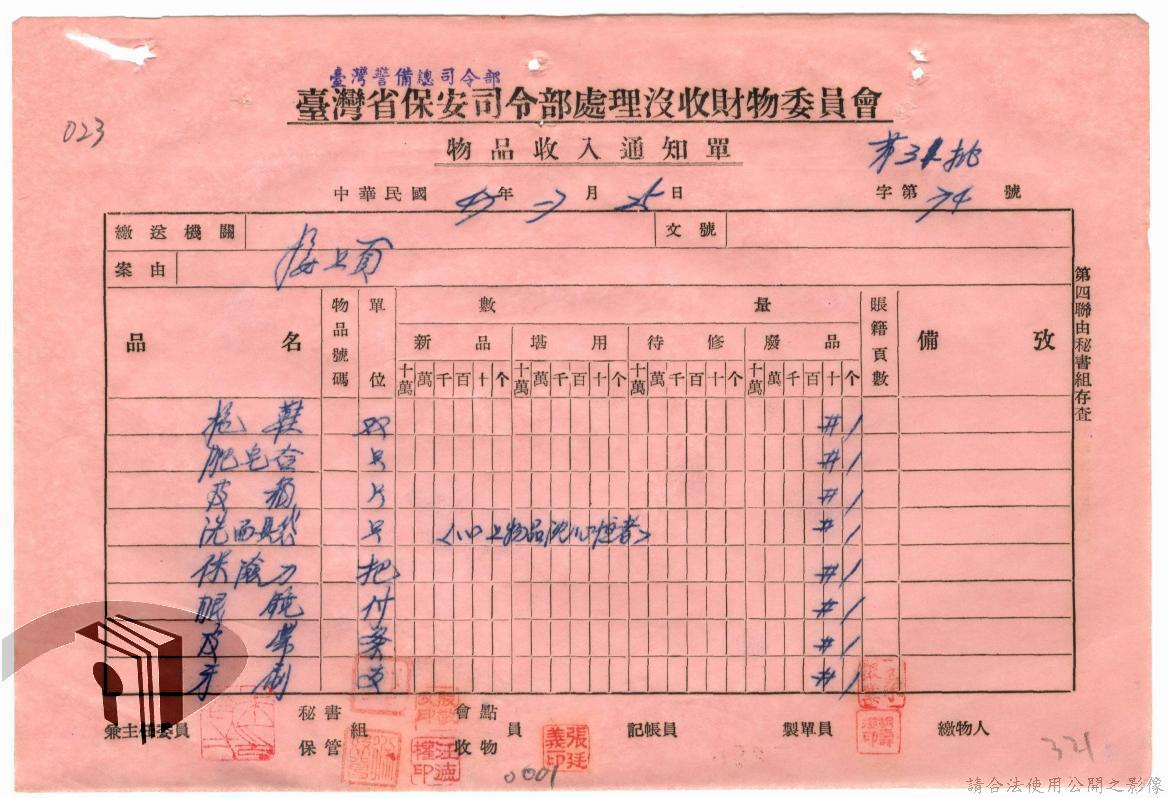 臺灣警備總司令部
臺灣省保安司令部處理沒收財物委員會
023
物品收入通知單
中華民國 47 年 二 月 25 日 字第 74 號
繳送機關 文號
案由 接上頁
品名 物品號碼 單位 數量 賬籍頁數 備攷
新品 堪用 待修 廢品
十萬 萬 千 百 十 个 十萬 萬 千 百 十 个 十萬 萬 千 百 十 个 十萬 萬 千 百 十 个
拖鞋 双 # 1
肥皂盒 只 # 1
皮 片 # 1
洗面具袋 只 # 1
保險刀 把 # 1
眼鏡 付 # 1
皮帶 条 # 1
牙刷 支 # 1
第四聯由秘書組存查
兼主任委員 秘書組 保管 會點 收物 員 記帳員 製單員 繳物人
張廷義印
0001
321
請合法使用公開之影像